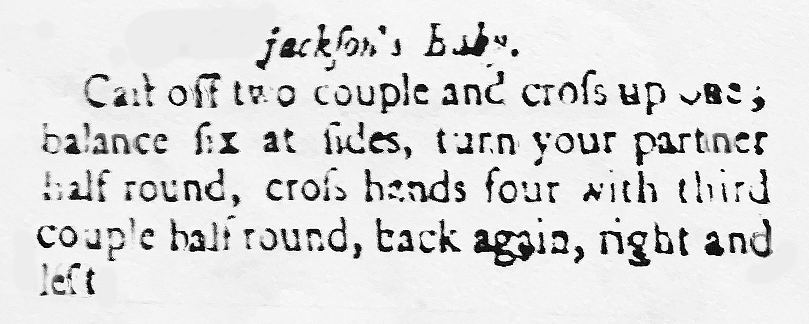 jackſon's Baby.
Caſt off two couple and croſs up one;
balance ſix at ſides, turn your partner
half round, croſs hands four with third
couple half round, back again, right and
left